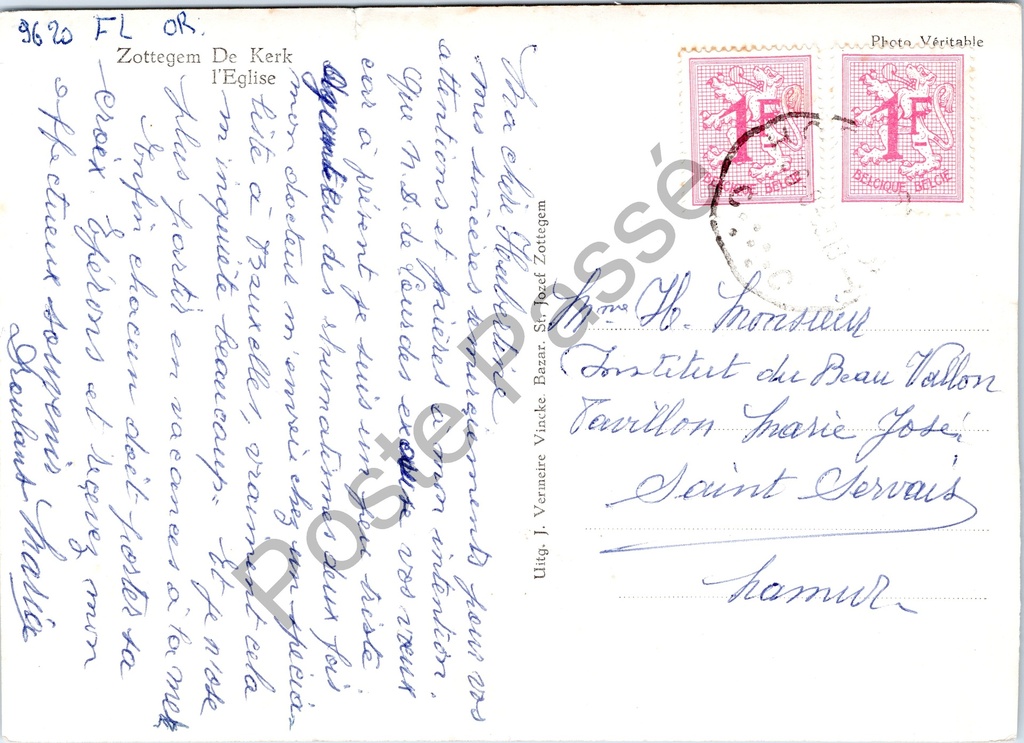 9620 FL OR.
Zottegem De Kerk
l'Eglise
Photo Véritable
1F
BELGIQUE BELGIE
1F
BELGIQUE BELGIË
Ma chère Hubertine
mes sincères remerciements pour vos
attentions et prières à mon intention.
Que N.D. de Lourdes exauce vos vœux
car à présent je suis un peu triste
des rhumatismes deux fois
mon docteur m'envoie chez un spécia-
liste à Bruxelles, vraiment cela
m'inquiète beaucoup. Et je n'ose
plus partir en vacances à la mer
Enfin chacun doit porter sa
croix. Espérons et recevez mon
affectueux souvenir
Maria
Uitg. J. Vermeire Vincke. Bazar. St. Jozef Zottegem
Mme H. Monsieur
Institut du Beau Vallon
Pavillon Marie José
Saint Servais
Namur
Poste Passé